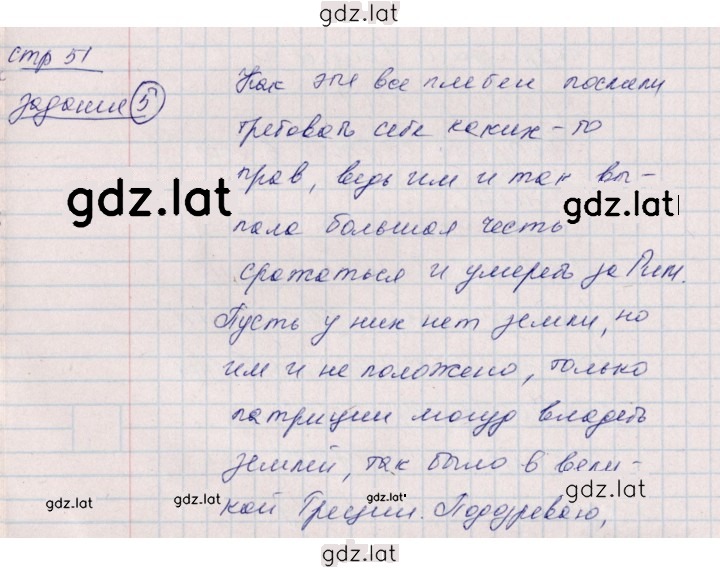 gdz.lat
стр 51
Задание 5
Как эти все плебеи посмели
требовать себе каких-то
прав, ведь им и так вы-
gdz.lat
gdz.lat
пала большая честь
сражаться и умереть за Рим.
Пусть у них нет земли, но
им и не положено, только
патриции могут владеть
землей, так было в вели-
gdz.lat
gdz.lat
gdz.lat
gdz.lat
кой Греции. Подозреваю,
gdz.lat